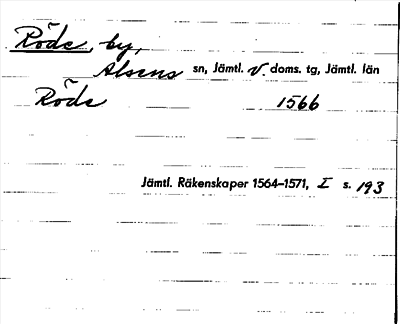 Röde, by,
Alsens sn, Jämtl. V. doms. tg, Jämtl. län
Röde 1566
Jämtl. Räkenskaper 1564–1571, I s. 193